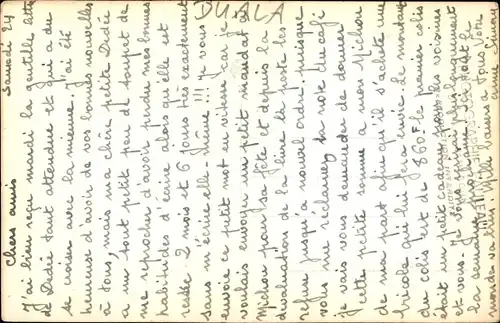 DUALA
Samedi 24
Chers amis
J'ai bien reçu mardi la gentille lettre
de Dédié tant attendue et qui a du
se croiser avec la mienne. J'ai été
heureuse d'avoir de vos bonnes nouvelles
à tous, mais ma chère petite Dédée
a un tout ptit peu de toupet de
me reprocher d'avoir perdu mes bonnes
habitudes d'écrire alors qu'elle est
restée 2 mois et 6 jours très exactement
sans m'écrire elle-même !!! je vous
envoie ce petit mot en vitesse car je
voulais envoyer un petit mandat à
Michou pour sa fête et depuis la
dévaluation de la livre la poste les
refuse jusqu'à nouvel ordre, puisque
vous me réclamez la note du café
je vais vous demander de donner
cette petite somme à mon Michou
de ma part afin qu'il s'achète une
bricole qui lui fera. Le montant
du colis est de 860F le premier colis
était un petit pour les voisines
et vous. Je vous écrirai plus longuement
la semaine prochaine
Mille baisers à tous